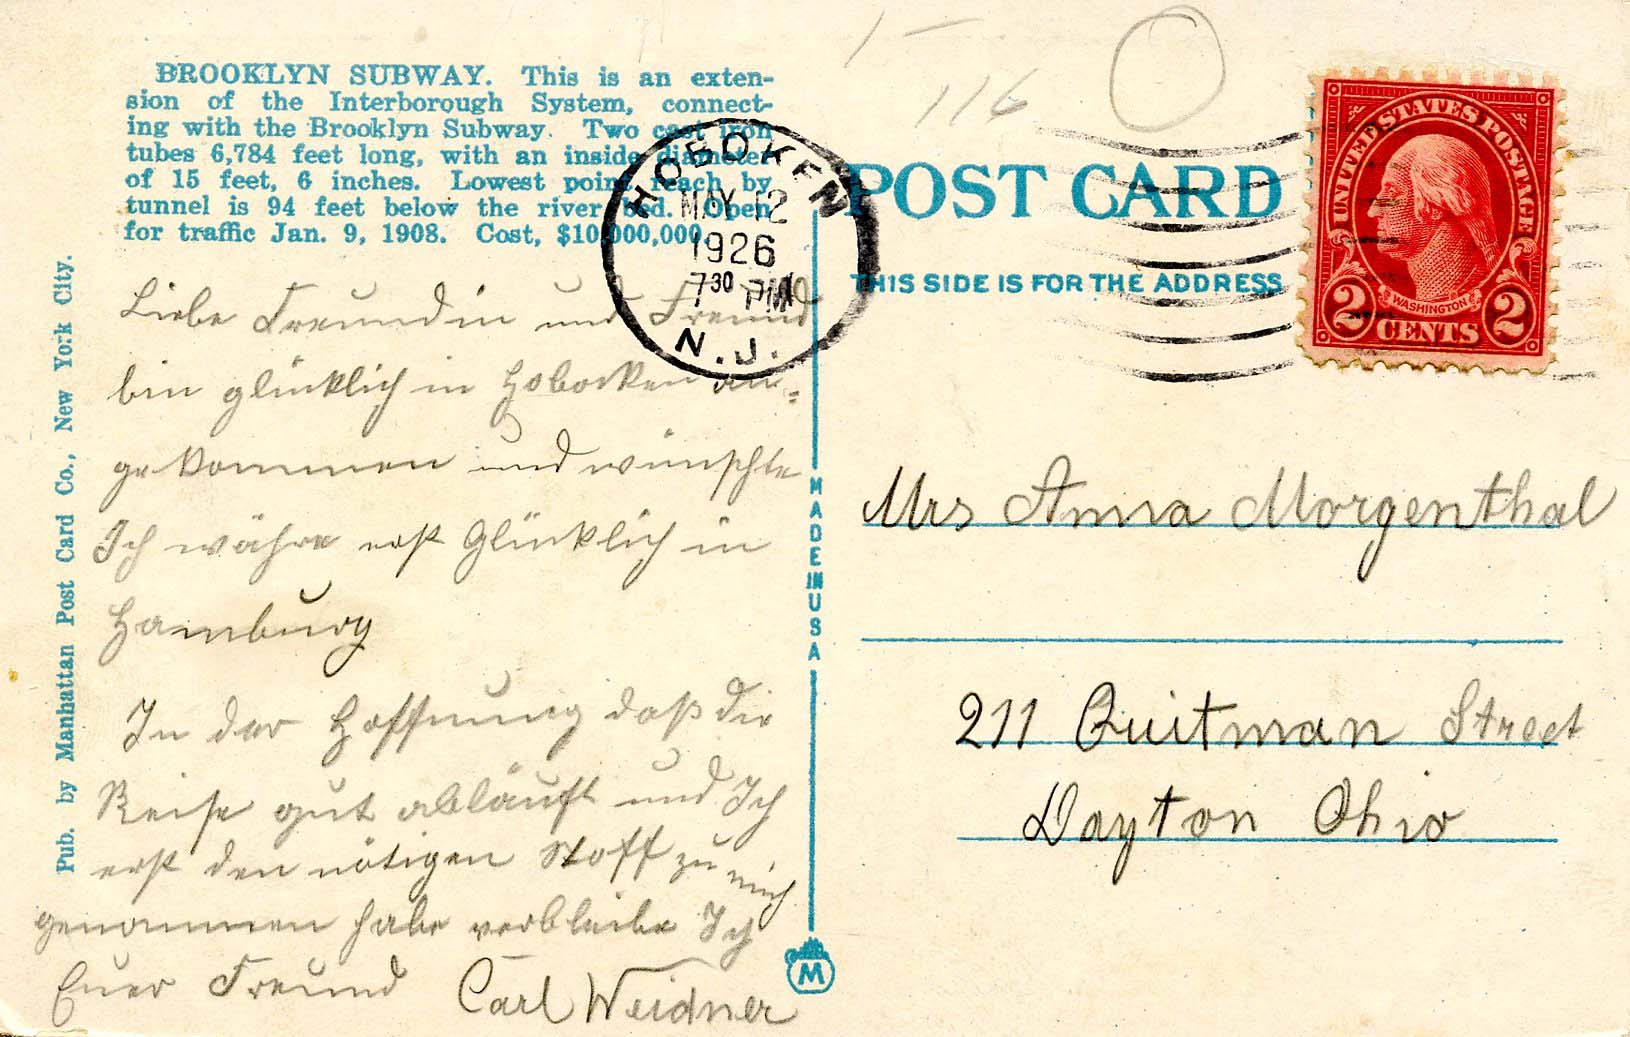 BROOKLYN SUBWAY. This is an exten-
sion of the Interborough System, connect-
ing with the Brooklyn Subway. Two cast iron
tubes 6,784 feet long, with an inside diameter
of 15 feet, 6 inches. Lowest point reach by
tunnel is 94 feet below the river bed. Open
for traffic Jan. 9, 1908. Cost, $10,000,000.
Liebe Freundin und Freund
bin glücklich in Hobocken an=
gekommen und wünschte
Ich währe erst Glücklich in
Hamburg
In der Hoffnung daß die
Reise gut abläuft und Ich
erst den nötigen Stoff zu mich
genommen habe verbleibe Ich
Euer Freund Carl Weidner
Pub. by Manhattan Post Card Co., New York City.
MADE IN USA
M
HOBOKEN
MAY 12
1926
7 30 PM
N.J.
116
POST CARD
THIS SIDE IS FOR THE ADDRESS
UNITED STATES POSTAGE
WASHINGTON
2 CENTS 2
Mrs Anna Morgenthal
211 Quitman Street
Dayton Ohio